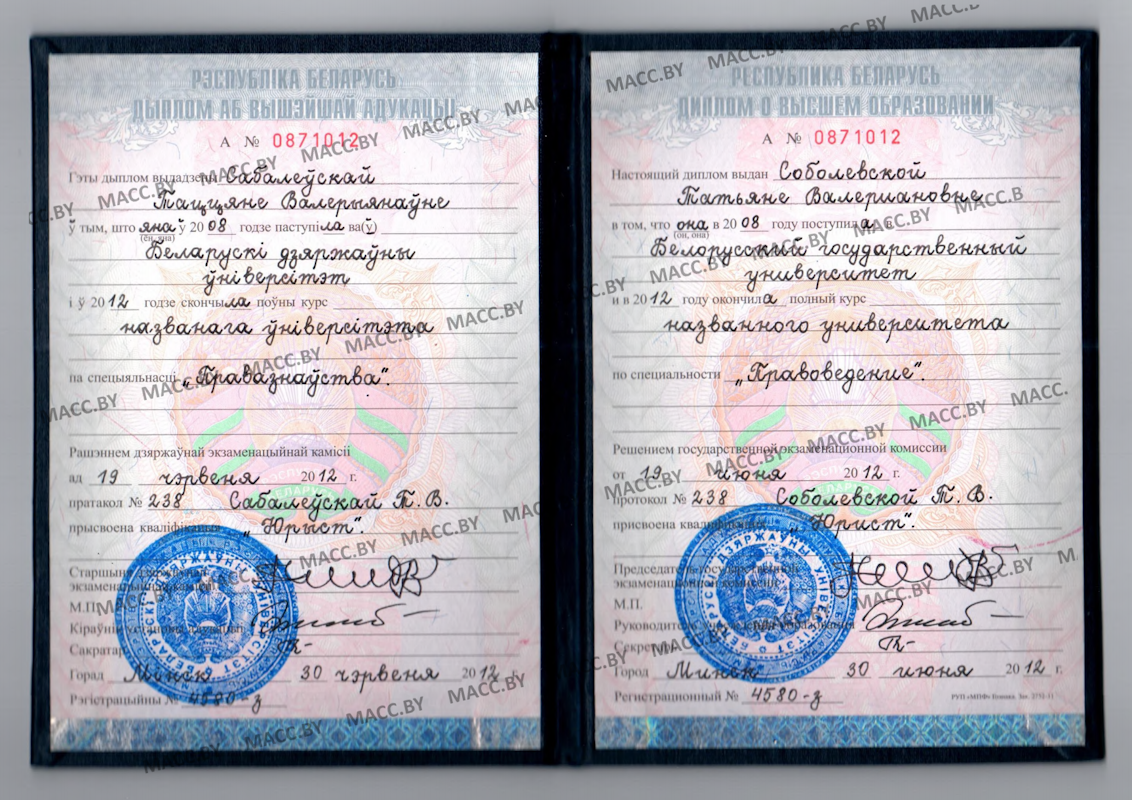 РЭСПУБЛІКА БЕЛАРУСЬ
ДЫПЛОМ АБ ВЫШЭЙШАЙ АДУКАЦЫІ
А № 0871012
Гэты дыплом выдадзены Сабалеўскай
Таццяне Валерыянаўне
ў тым, што яна ў 2008 годзе паступіла ва(ў)
(ён, яна)
Беларускі дзяржаўны
ўніверсітэт
і ў 2012 годзе скончыла поўны курс
названага ўніверсітэта
па спецыяльнасці „Правазнаўства".
Рашэннем дзяржаўнай экзаменацыйнай камісіі
ад 19 чэрвеня 2012 г.
пратакол № 238 Сабалеўскай Т. В.
прысвоена кваліфікацыя „Юрыст".
Старшыня дзяржаўнай
экзаменацыйнай камісіі
М.П.
Кіраўнік установы адукацыі
Сакратар
Горад Мінск 30 чэрвеня 2012 г.
Рэгістрацыйны № 4580-з
РЕСПУБЛИКА БЕЛАРУСЬ
ДИПЛОМ О ВЫСШЕМ ОБРАЗОВАНИИ
А № 0871012
Настоящий диплом выдан Соболевской
Татьяне Валериановне
в том, что она в 2008 году поступила в
(он, она)
Белорусский государственный
университет
и в 2012 году окончила полный курс
названного университета
по специальности „Правоведение".
Решением государственной экзаменационной комиссии
от 19 июня 2012 г.
протокол № 238 Соболевской Т. В.
присвоена квалификация „Юрист".
Председатель государственной
экзаменационной комиссии
М.П.
Руководитель учреждения образования
Секретарь
Город Минск 30 июня 2012 г.
Регистрационный № 4580-з
MACC.BY